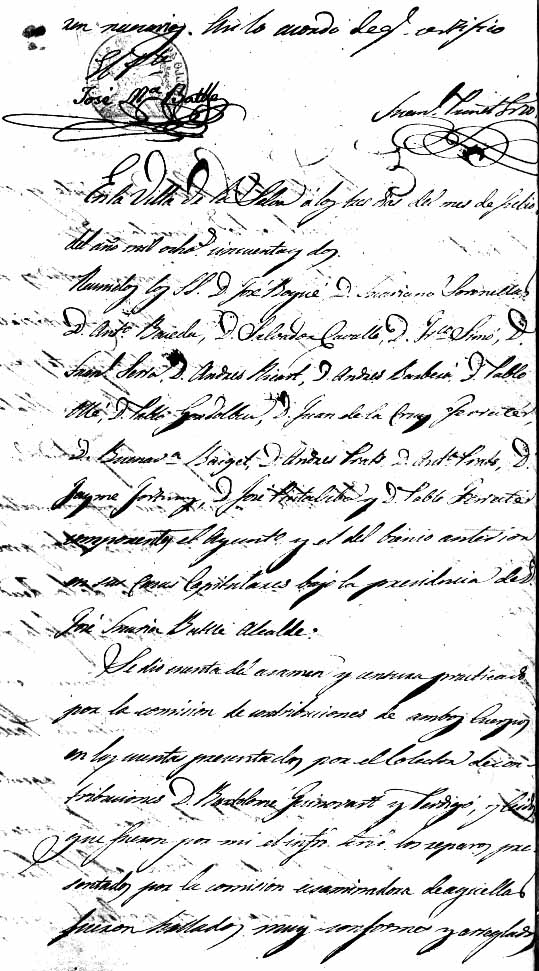 Así lo acordó de q.e certifico
José M.a Batlle
En la Villa de la Selva á los tres dias del mes de Julio
del año mil ocho.s cincuenta y dos.
Reunidos los SS. D. José Roqué D. Mariano
D. Ant.o Baceda, D. Salvador Cavallé, D. Fr.co Simó, D.
D. Andres Ricart, D. Andres Barberá D. Pablo
D. Pablo D. Juan de la Cruz Ferrater,
D. Buenav.a Puiget, D. Andres Prats D. Ant.o D.
Jayme Fortuny, D. José y D. Pablo Ferrater
componentes el Ayunt.o y el del bienio anterior
en sus Casas Capitulares bajo la presidencia de D.
José Maria Batlle Alcalde.
Se dio cuenta del examen y censura practicado
por la comision de contribuciones de ambos Cuerpos
en las cuentas presentadas por el Colector de con-
tribuciones D. Bartolomé Guinovart y Verdiga, y leidos
que fueron por mi el infro. Srio. los reparos pre-
sentados por la comision ecsaminadora de aquellas
fueron hallados muy conformes y arreglados